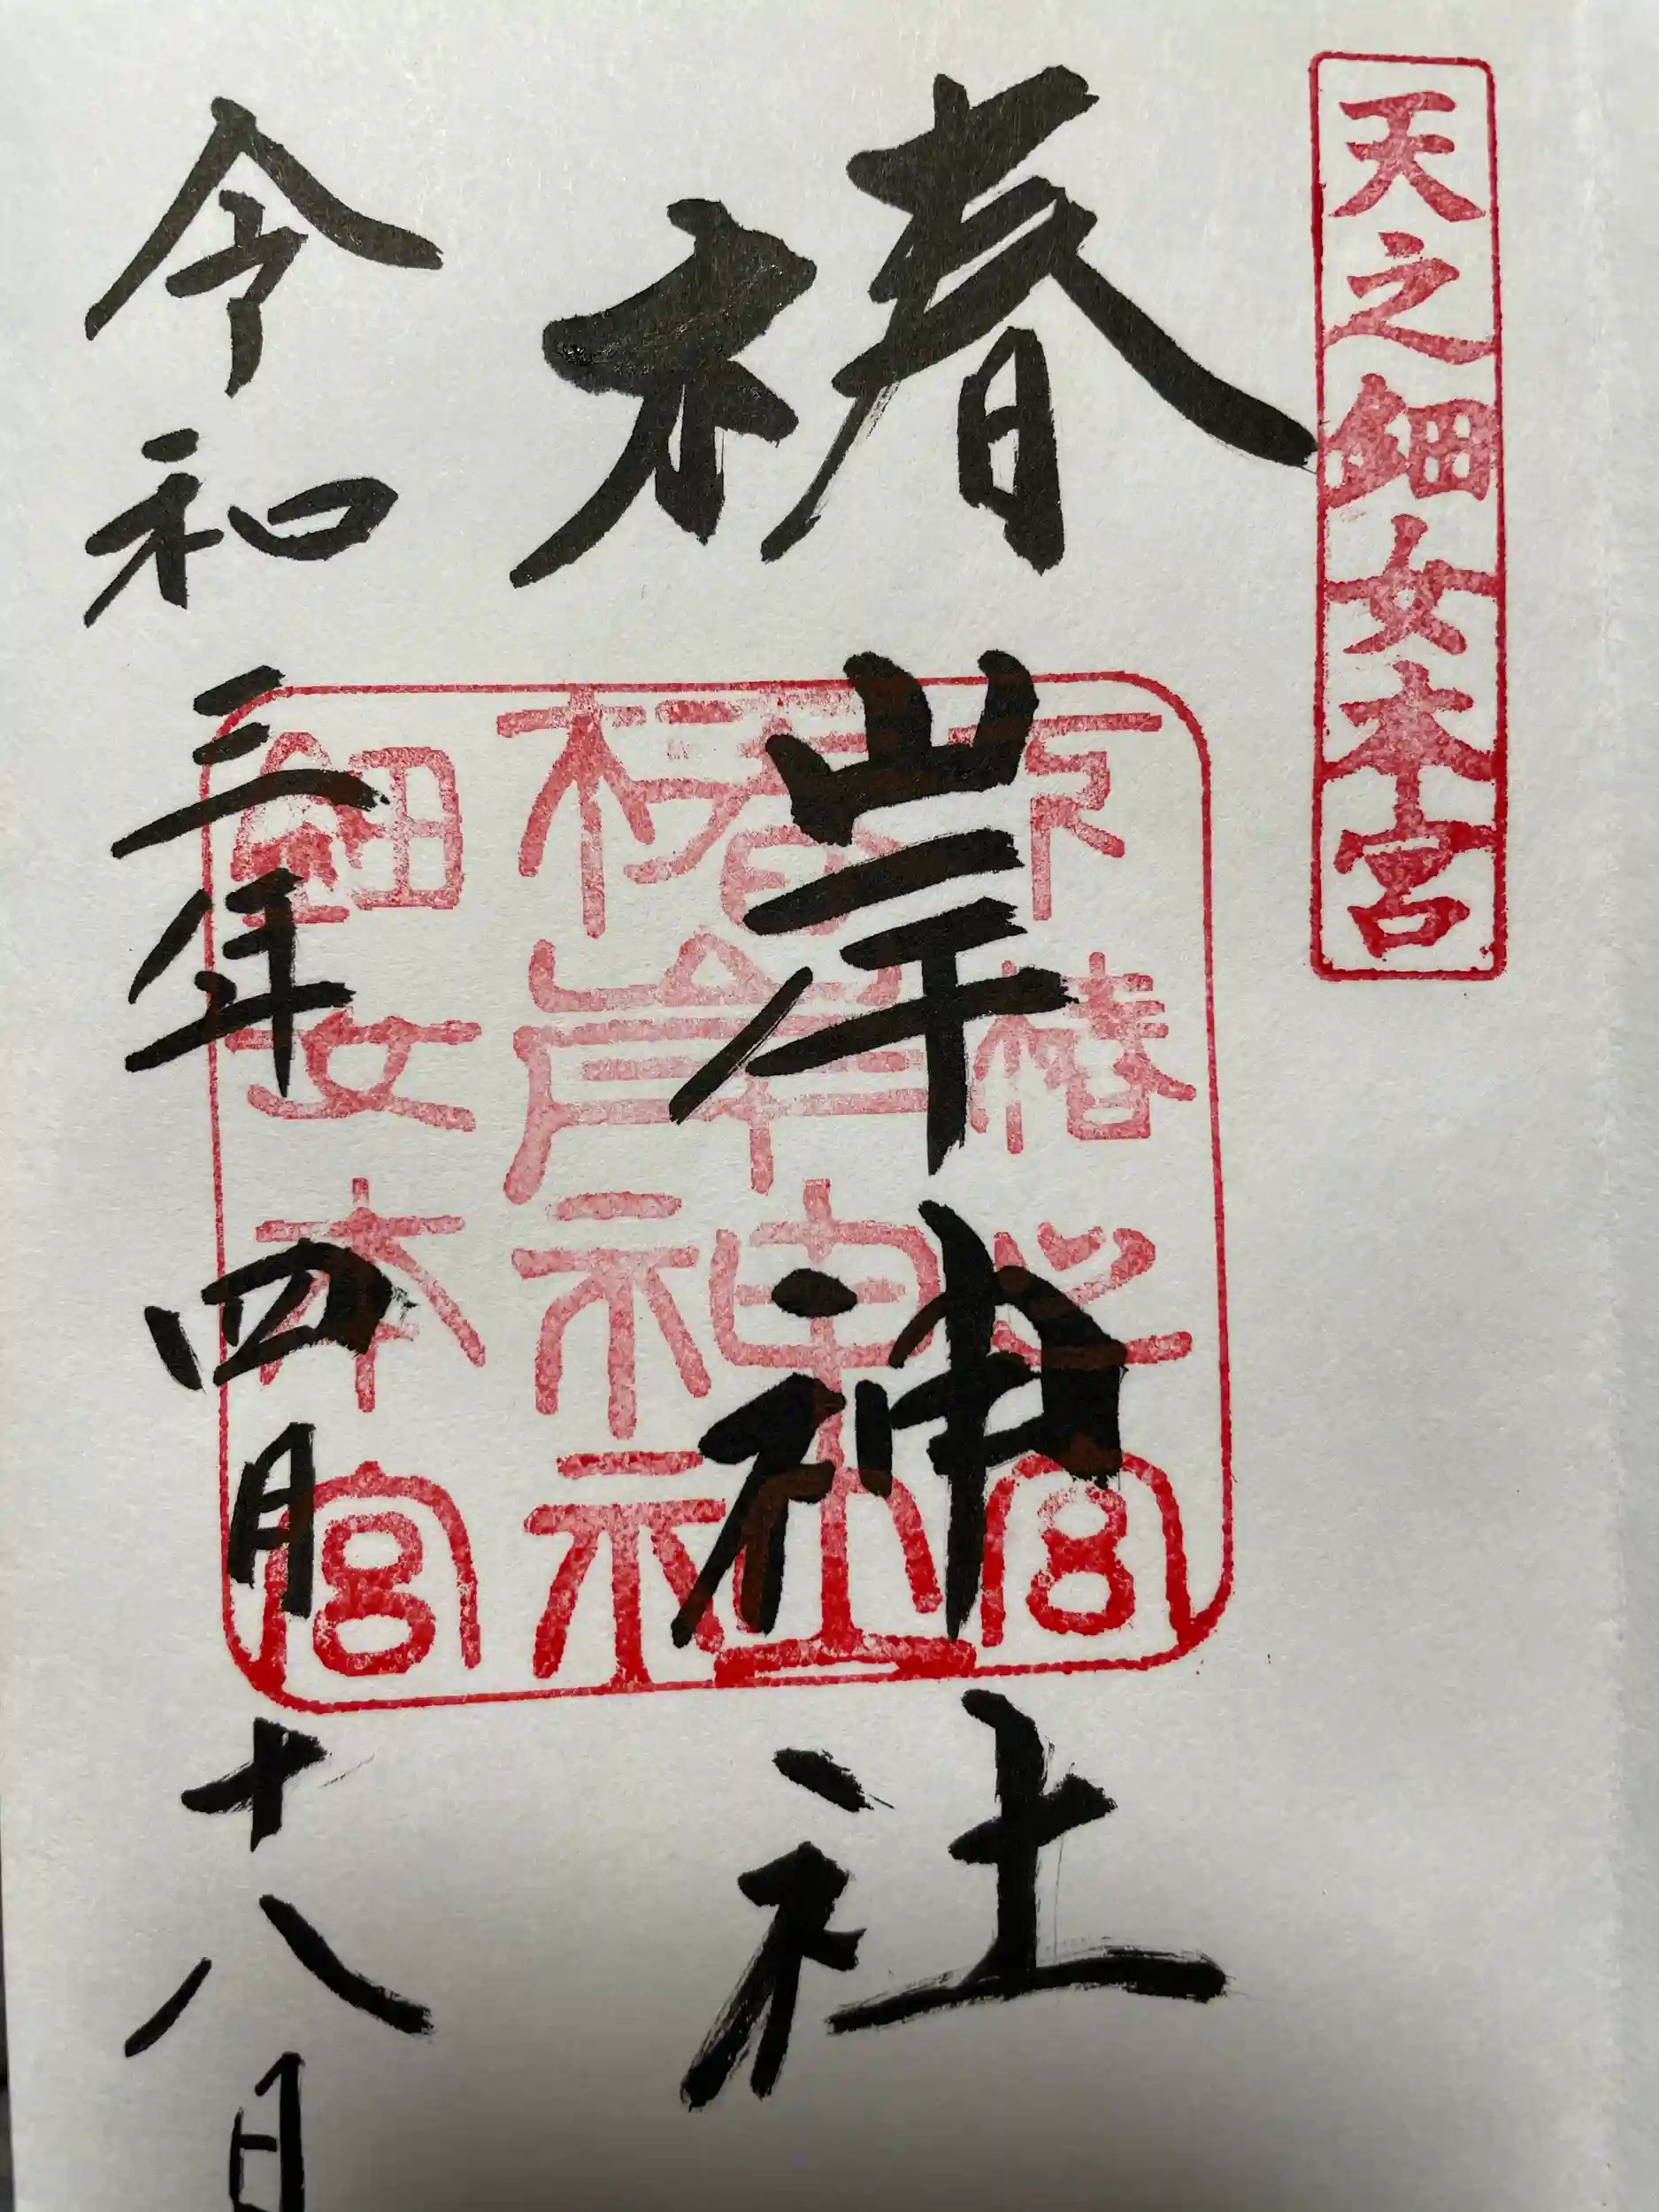 天之鈿女本宮
椿岸神社
令和三年四月十八日
椿之宮
椿岸神社
鈿女本宮